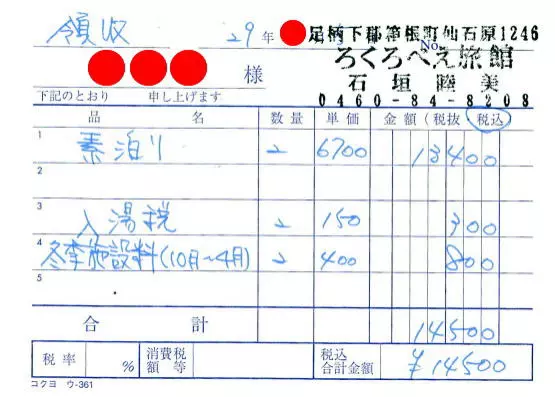 領収 29年 足柄下郡箱根町仙石原1246
No.
ろくろべえ旅館
様 石垣睦美
下記のとおり 申し上げます 0460-84-8208
品 名 数量 単価 金額(税抜 税込)
1 素泊り 2 6700 13400
2
3 入湯税 2 150 300
4 冬季施設料(10月～4月) 2 400 800
5
合計 14500
税率 % 消費税額等 税込合計金額 ¥14500
コクヨ ウ-361